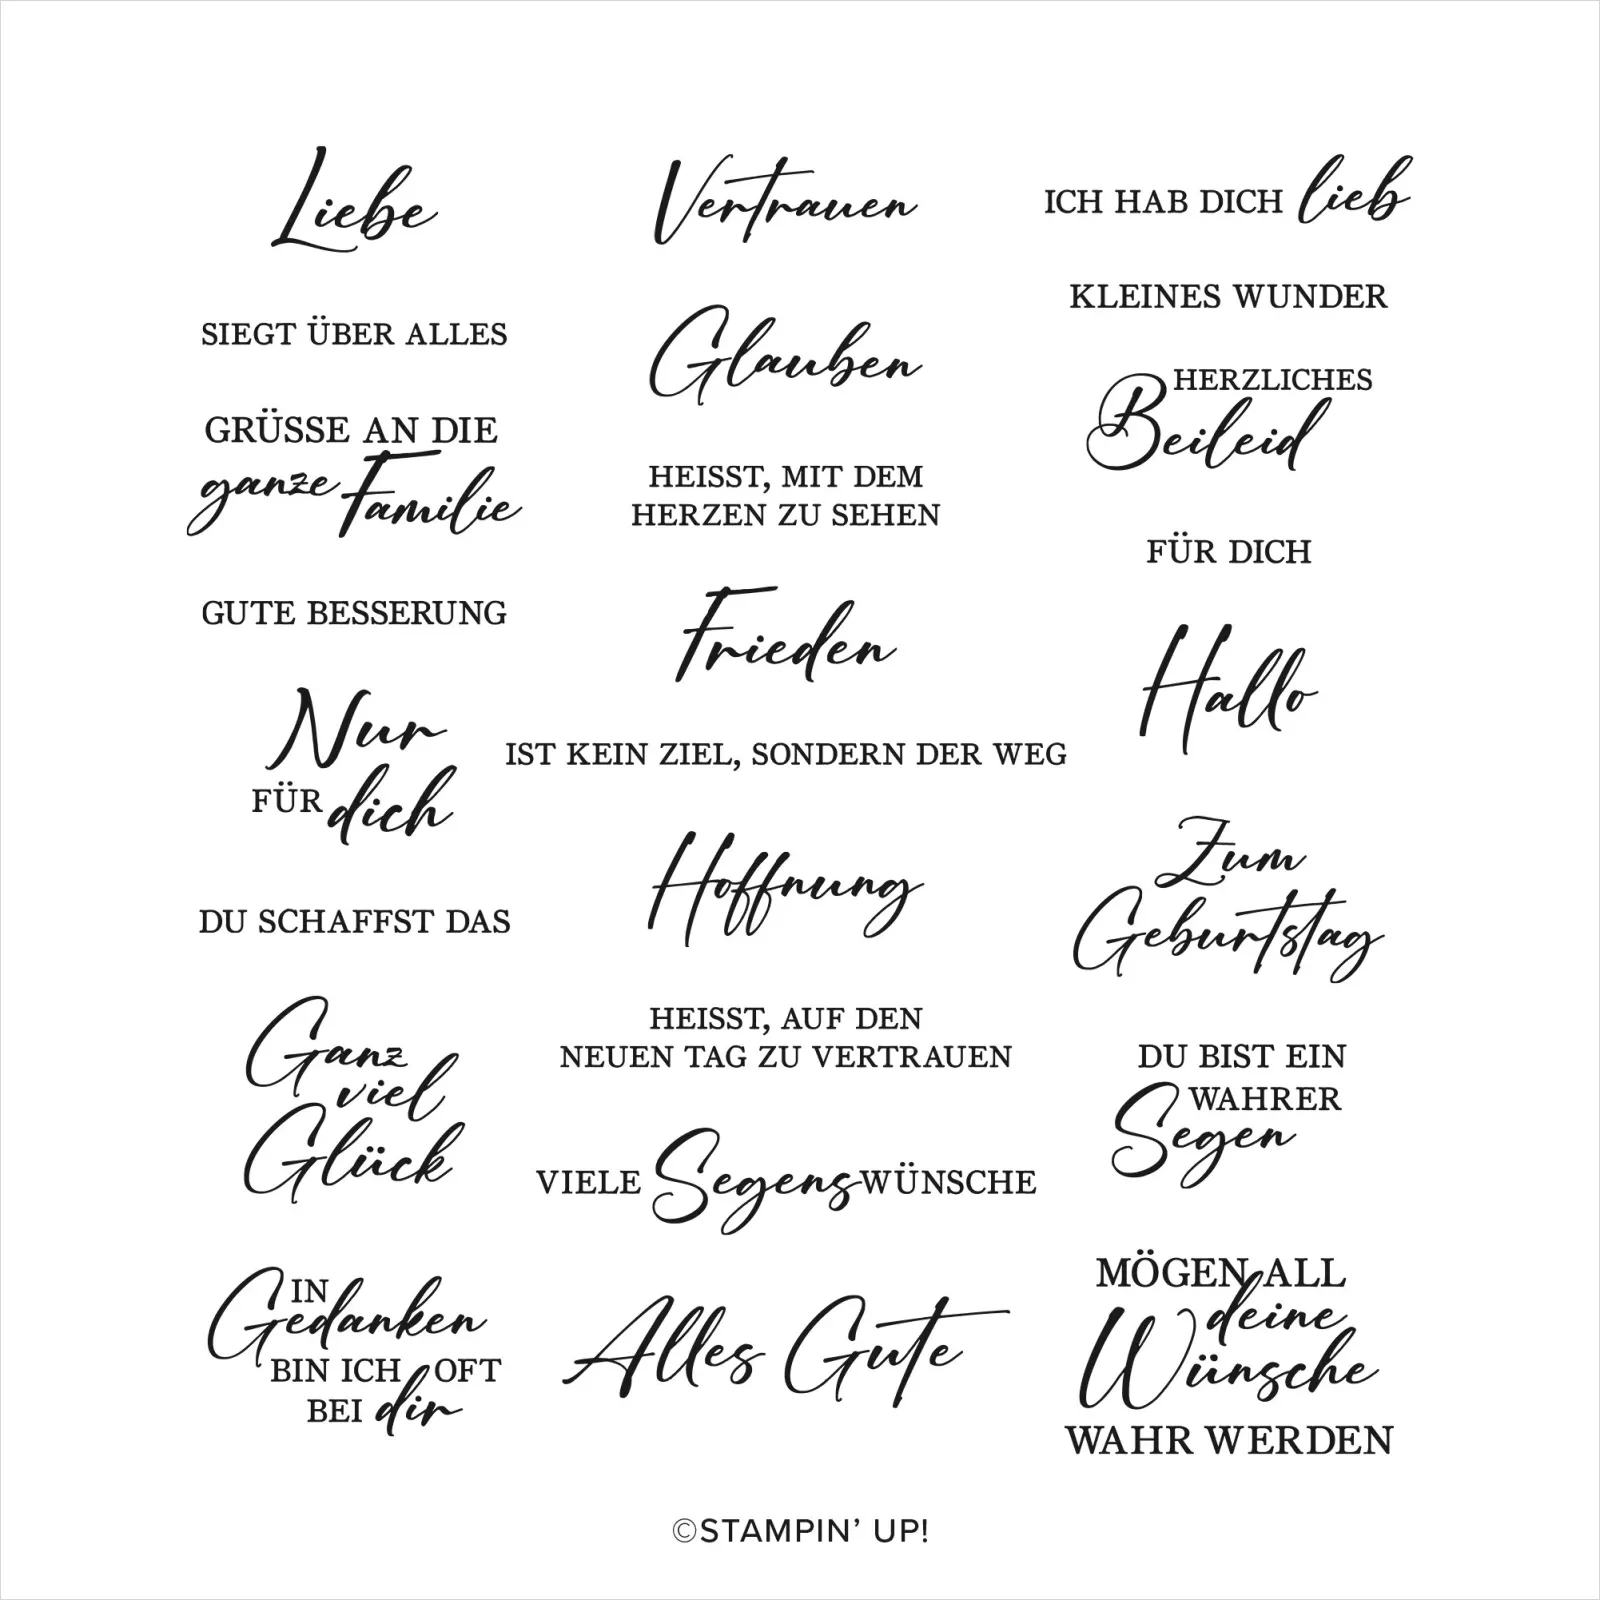 Liebe
SIEGT ÜBER ALLES
GRÜSSE AN DIE
ganze Familie
GUTE BESSERUNG
Nur
FÜR dich
DU SCHAFFST DAS
Ganz
viel
Glück
IN
Gedanken
BIN ICH OFT
BEI dir
Vertrauen
Glauben
HEISST, MIT DEM
HERZEN ZU SEHEN
Frieden
IST KEIN ZIEL, SONDERN DER WEG
Hoffnung
HEISST, AUF DEN
NEUEN TAG ZU VERTRAUEN
VIELE SegensWÜNSCHE
Alles Gute
ICH HAB DICH lieb
KLEINES WUNDER
HERZLICHES
Beileid
FÜR DICH
Hallo
Zum
Geburtstag
DU BIST EIN
WAHRER
Segen
MÖGEN ALL
deine
Wünsche
WAHR WERDEN
©STAMPIN’ UP!